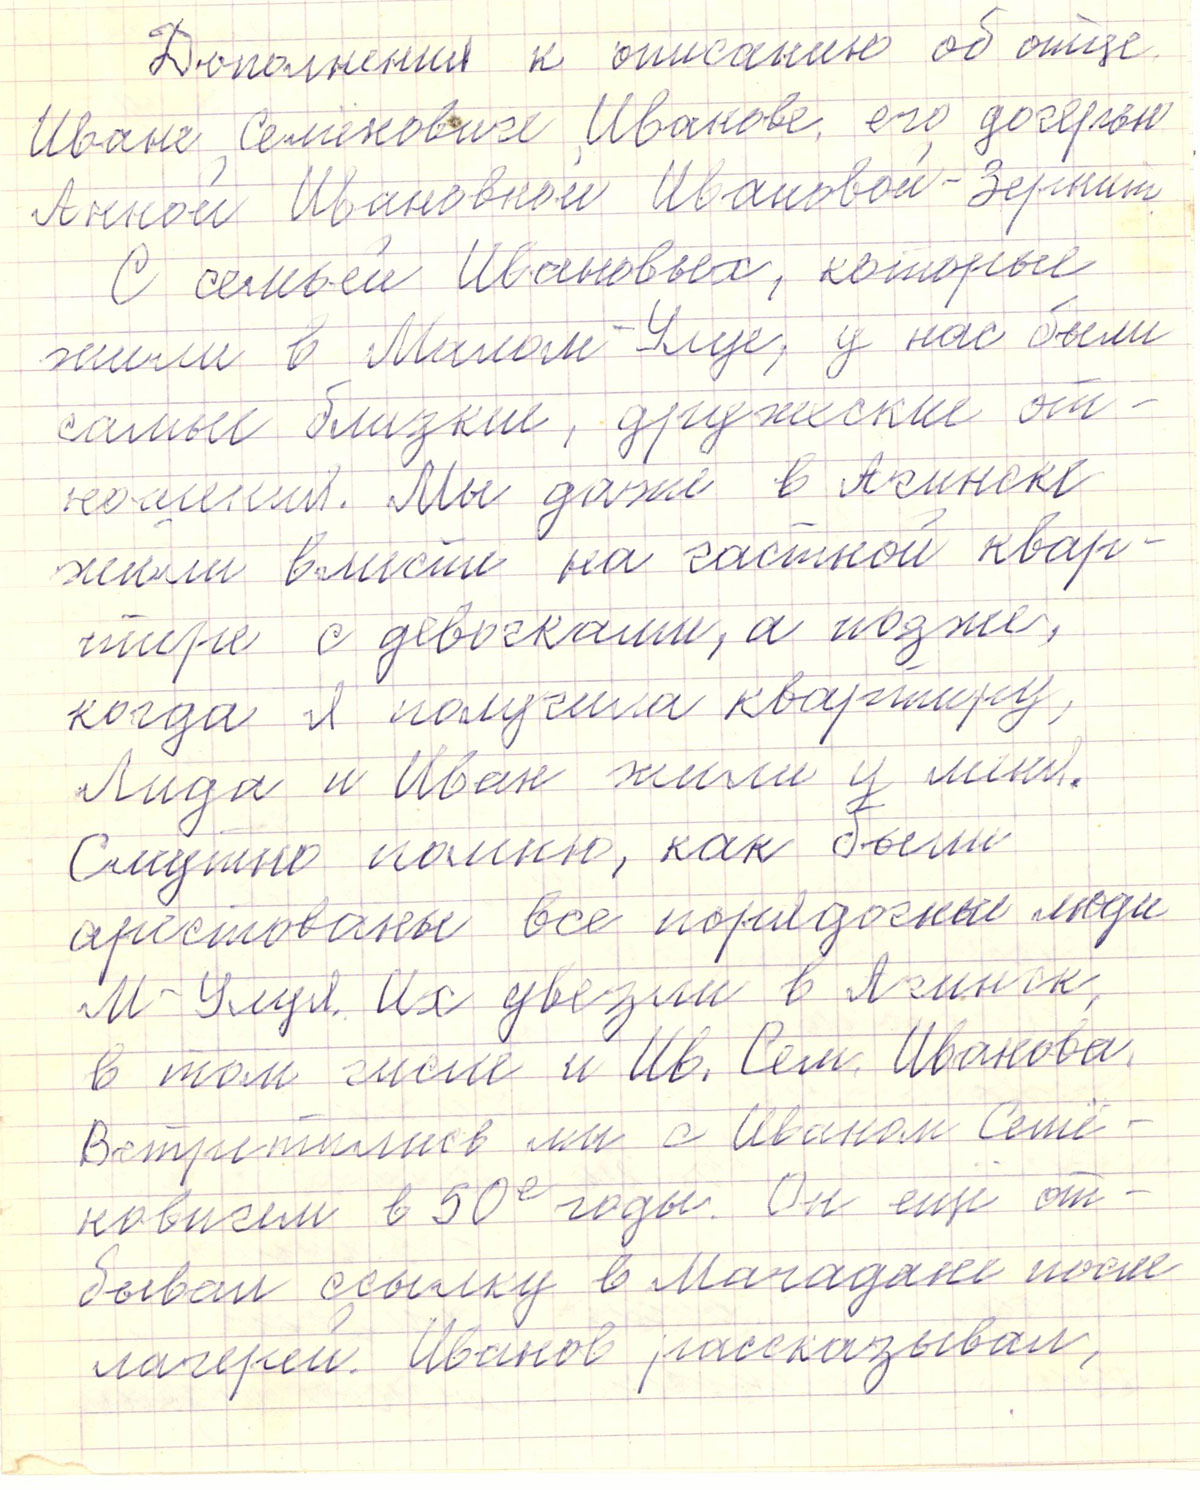 Дополнения к описанию об отце
Иване Семёновиче Иванове, его дочерью
Анной Ивановной Ивановой-Зернит
С семьей Ивановых, которые
жили в Малом-Улуе, у нас были
самые близкие, дружеские от-
ношения. Мы даже в Ачинске
жили вместе на частной квар-
тире с девочками, а позже,
когда я получила квартиру,
Лида и Иван жили у меня.
Смутно помню, как были
арестованы все порядочные люди
М-Улуя. Их увезли в Ачинск,
в том числе и Ив. Сем. Иванова.
Встретились мы с Иваном Семё-
новичем в 50е годы. Он ещё от-
бывал ссылку в Магадане после
лагерей. Иванов рассказывал,